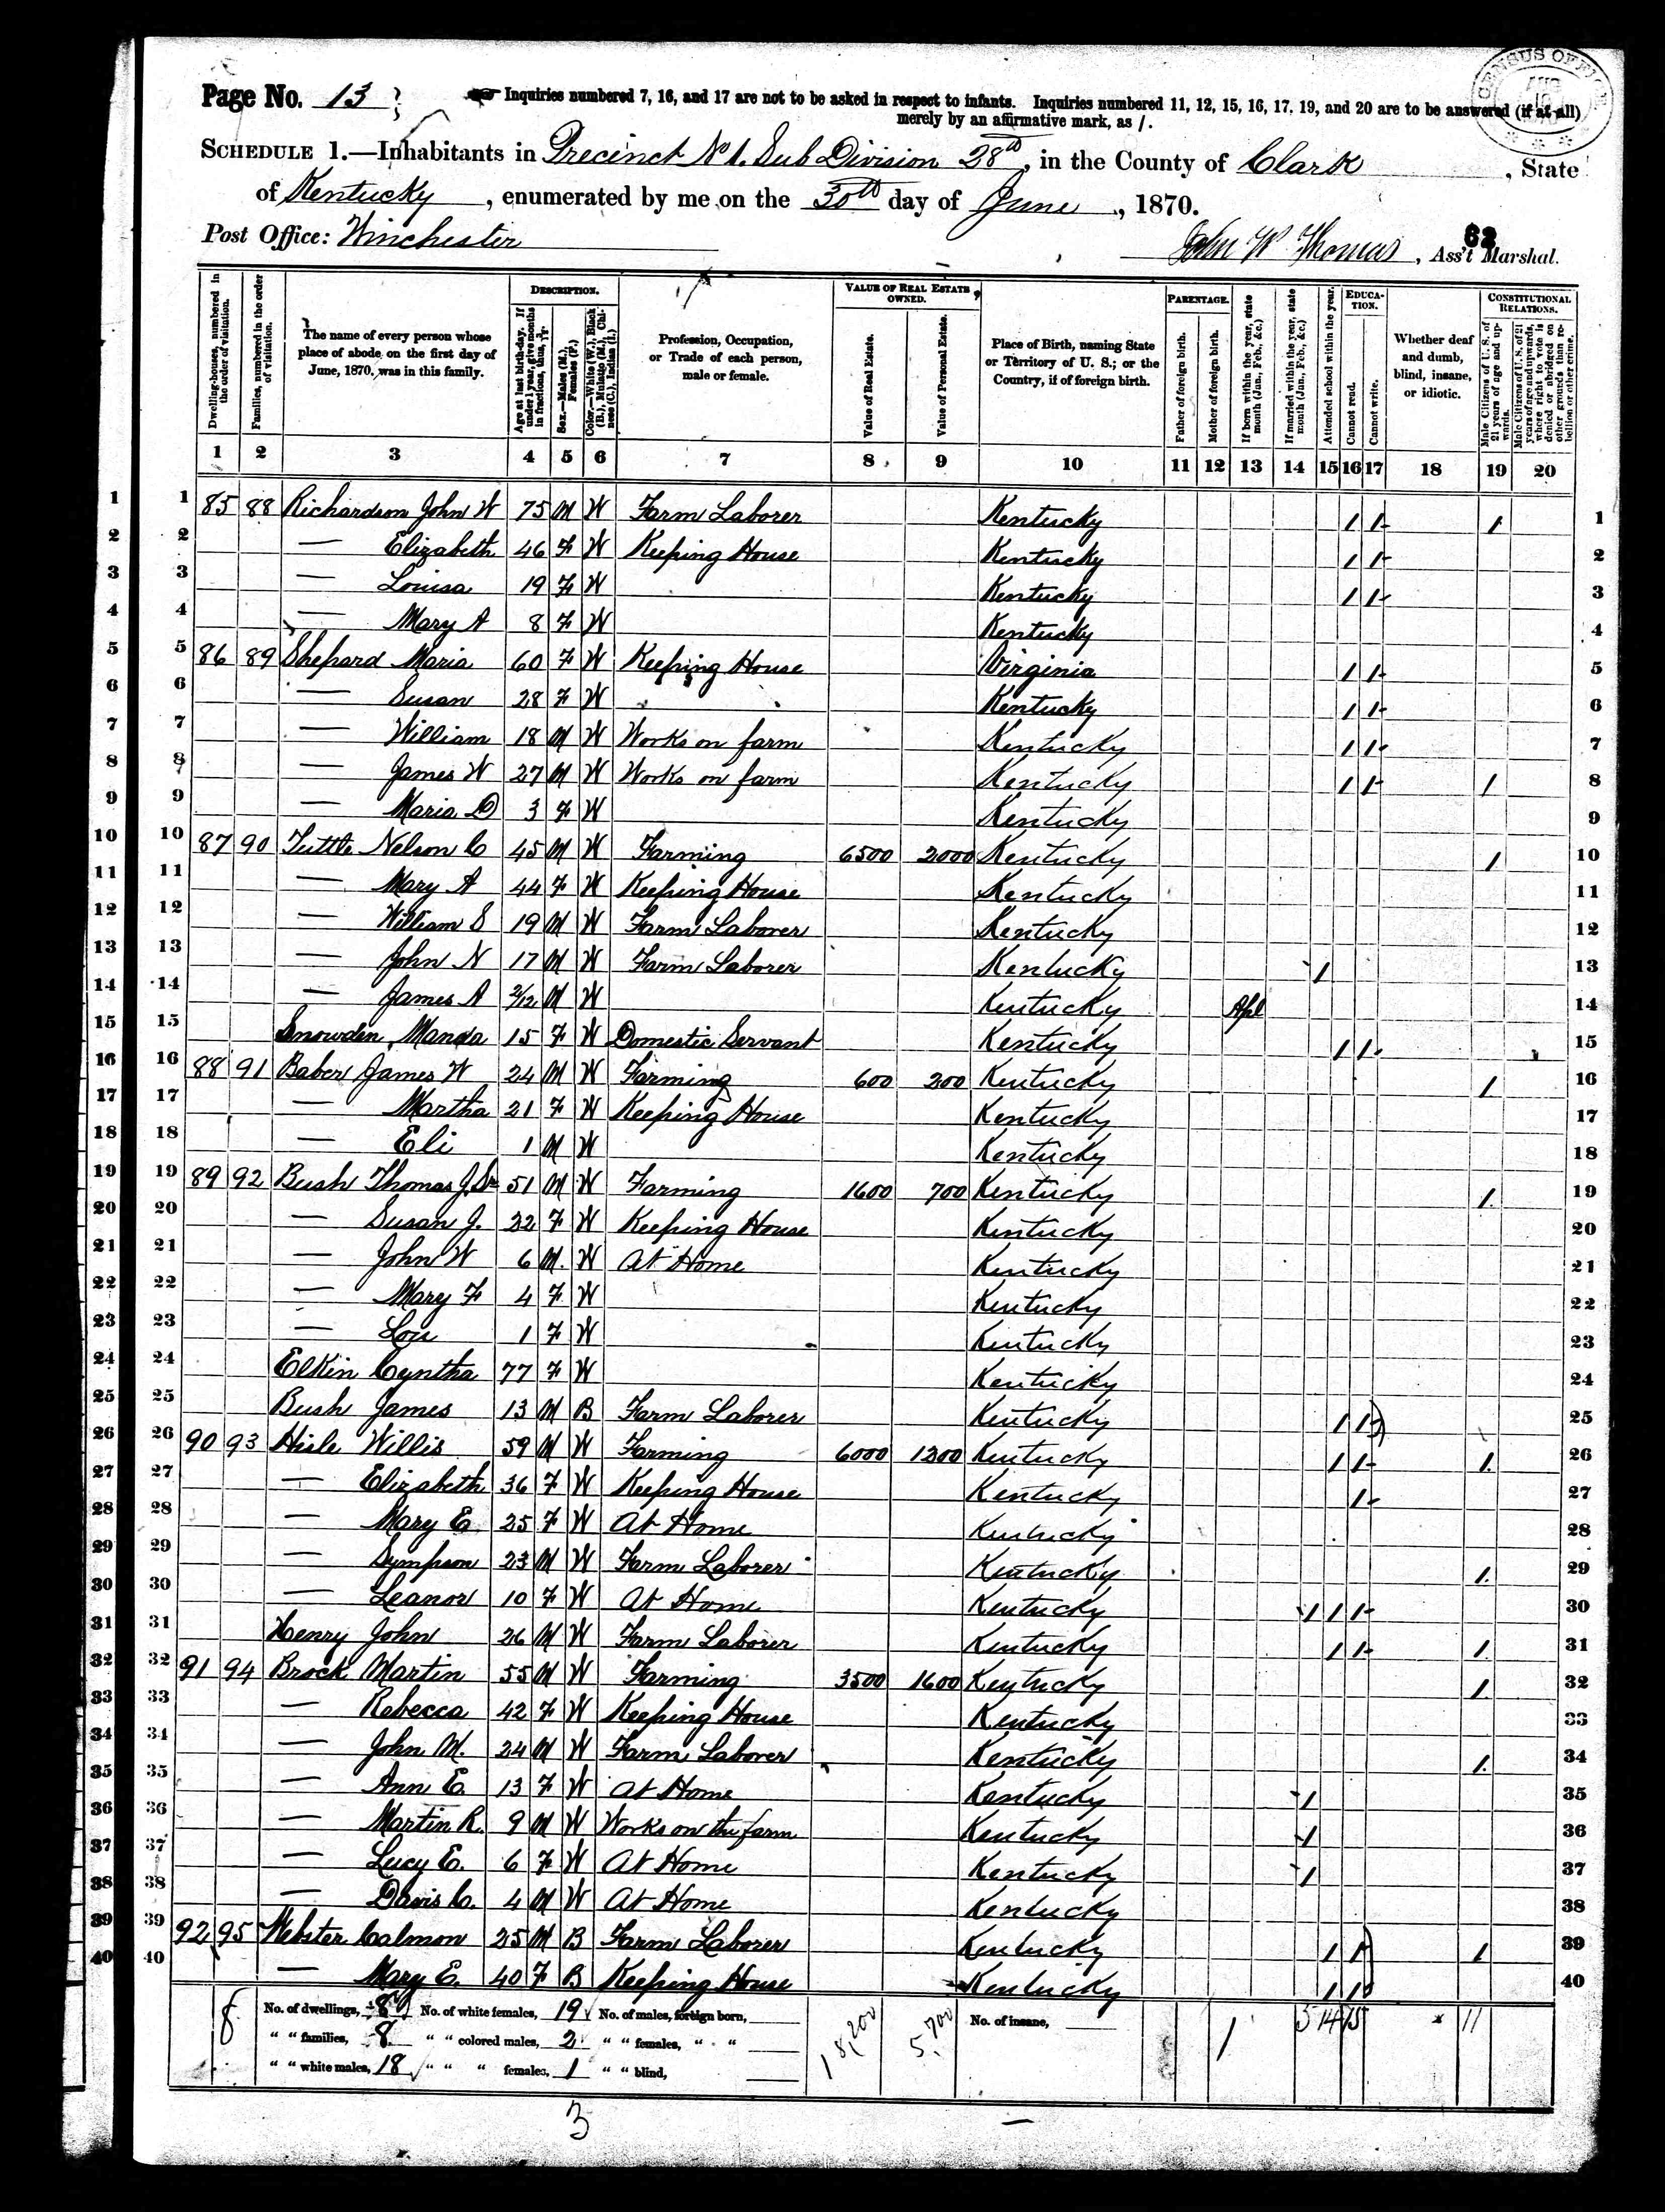 Page No. 13
Inquiries numbered 7, 16, and 17 are not to be asked in respect to infants. Inquiries numbered 11, 12, 15, 16, 17, 19, and 20 are to be answered (if at all)
merely by an affirmative mark, as /.
CENSUS OFFICE
SCHEDULE 1.—Inhabitants in Precinct No 1. Sub Division 28th, in the County of Clark, State
of Kentucky, enumerated by me on the 30th day of June, 1870.
Post Office: Winchester
62
John W Thomas, Ass't Marshal.
Dwelling-houses, numbered in the order of visitation.
Families, numbered in the order of visitation.
The name of every person whose place of abode on the first day of June, 1870, was in this family.
DESCRIPTION.
Age at last birth-day. If under 1 year, give months in fractions, thus,
Sex.—Males (M.), Females (F.)
Color.—White (W.), Black (B.), Mulatto (M.), Chinese (C.), Indian (I.)
Profession, Occupation, or Trade of each person, male or female.
VALUE OF REAL ESTATE OWNED.
Value of Real Estate.
Value of Personal Estate.
Place of Birth, naming State or Territory of U. S.; or the Country, if of foreign birth.
PARENTAGE.
Father of foreign birth.
Mother of foreign birth.
If born within the year, state month (Jan., Feb., &c.)
If married within the year, state month (Jan., Feb., &c.)
Attended school within the year.
EDUCATION.
Cannot read.
Cannot write.
Whether deaf and dumb, blind, insane, or idiotic.
CONSTITUTIONAL RELATIONS.
Male Citizens of U. S. of 21 years of age and upwards.
Male Citizens of U. S. of 21 years of age and upwards, whose right to vote is denied or abridged on other grounds than rebellion or other crime.
1 2 3 4 5 6 7 8 9 10 11 12 13 14 15 16 17 18 19 20
1 1 85 88 Richardson John W 75 M W Farm Laborer Kentucky / / / 1
2 2 — Elizabeth 46 F W Keeping House Kentucky / / 2
3 3 — Louisa 19 F W Kentucky / / 3
4 4 — Mary A 8 F W Kentucky 4
5 5 86 89 Shepard Maria 60 F W Keeping House Virginia / / 5
6 6 — Susan 28 F W Kentucky / / 6
7 7 — William 18 M W Works on farm Kentucky / / 7
8 8 — James W 27 M W Works on farm Kentucky / / / 8
9 9 — Maria D 3 F W Kentucky 9
10 10 87 90 Tuttle Nelson C 45 M W Farming 6500 2000 Kentucky / 10
11 11 — Mary A 44 F W Keeping House Kentucky 11
12 12 — William S 19 M W Farm Laborer Kentucky 12
13 13 — John N 17 M W Farm Laborer Kentucky / 13
14 14 — James A 2/12 M W Kentucky Apl 14
15 15 Snowden Manda 15 F W Domestic Servant Kentucky / / 15
16 16 88 91 Baber James W 24 M W Farming 600 200 Kentucky / 16
17 17 — Martha 21 F W Keeping House Kentucky 17
18 18 — Eli 1 M W Kentucky 18
19 19 89 92 Bush Thomas J. Sr 51 M W Farming 1600 700 Kentucky / 19
20 20 — Susan J. 22 F W Keeping House Kentucky 20
21 21 — John W 6 M. W At Home Kentucky 21
22 22 — Mary F 4 F W Kentucky 22
23 23 — Lou 1 F W Kentucky 23
24 24 Elkin Cyntha 77 F W Kentucky 24
25 25 Bush James 13 M B Farm Laborer Kentucky / / 25
26 26 90 93 Hisle Willis 59 M W Farming 6000 1200 Kentucky / / / 26
27 27 — Elizabeth 36 F W Keeping House Kentucky / 27
28 28 — Mary E. 25 F W At Home Kentucky 28
29 29 — Sympson 23 M W Farm Laborer Kentucky / 29
30 30 — Leanor 10 F W At Home Kentucky / / / 30
31 31 Henry John 26 M W Farm Laborer Kentucky / / / 31
32 32 91 94 Brock Martin 55 M W Farming 3500 1600 Kentucky / 32
33 33 — Rebecca 42 F W Keeping House Kentucky 33
34 34 — John M. 24 M W Farm Laborer Kentucky / 34
35 35 — Ann E. 13 F W At Home Kentucky / 35
36 36 — Martin R. 9 M W Works on the farm Kentucky / 36
37 37 — Lucy E. 6 F W At Home Kentucky / 37
38 38 — Davis C. 4 M W At Home Kentucky 38
39 39 92 95 Webster Calmon 25 M B Farm Laborer Kentucky / / / 39
40 40 — Mary E. 40 F B Keeping House Kentucky / / 40
8 No. of dwellings, 8 No. of white females, 19 No. of males, foreign born, 18,200 5,700 No. of insane, 1 5 14 15 11
" " families, 8 " " colored males, 2 " " females, " "
" " white males, 18 " " " females, 1 " " blind,
3